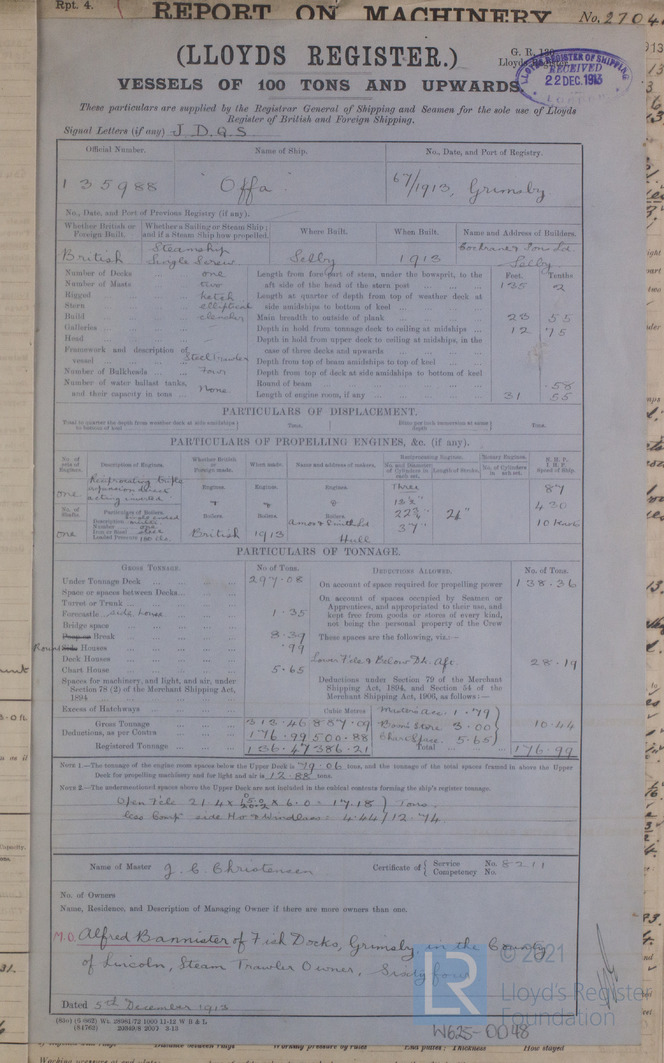 Rpt. 4.
REPORT ON MACHINERY
No. 2704
(LLOYDS REGISTER.)
VESSELS OF 100 TONS AND UPWARDS
LLOYD'S REGISTER OF SHIPPING
RECEIVED
22 DEC. 1913
These particulars are supplied by the Registrar General of Shipping and Seamen for the sole use of Lloyds
Register of British and Foreign Shipping.
Signal Letters (if any) J D Q S
Official Number. Name of Ship. No., Date, and Port of Registry.
135988 "Offa" 67/1913, Grimsby
No., Date, and Port of Previous Registry (if any).
Whether British or Foreign Built. Whether a Sailing or Steam Ship; and if a Steam Ship how propelled. Where Built. When Built. Name and Address of Builders.
British Steamship Single Screw Selby 1913 Cochrane & Sons Ld. Selby
Feet. Tenths
Number of Decks one Length from fore part of stem, under the bowsprit, to the
Number of Masts two aft side of the head of the stern post 135 2
Rigged ketch Length at quarter of depth from top of weather deck at
Stern elliptical side amidships to bottom of keel
Build clencher Main breadth to outside of plank 23 55
Galleries Depth in hold from tonnage deck to ceiling at midships 12 75
Head Depth in hold from upper deck to ceiling at midships, in the
Framework and description of case of three decks and upwards
vessel Steel Depth from top of beam amidships to top of keel
Number of Bulkheads Four Depth from top of deck at side amidships to bottom of keel
Number of water ballast tanks, Round of beam .58
and their capacity in tons None Length of engine room, if any 31 55
PARTICULARS OF DISPLACEMENT.
Total to quarter the depth from weather deck at side amidships to bottom of keel Tons. Ditto per inch immersion at same depth Tons.
PARTICULARS OF PROPELLING ENGINES, &c. (if any).
No. of sets of Engines. Description of Engines. Whether British or Foreign made. When made. Name and address of makers. Reciprocating Engines. Rotary Engines. N.H.P. I.H.P. Speed of Ship.
No. and Diameter of Cylinders in each set. Length of Stroke. No. of Cylinders in each set.
one Reciprocating triple expansion direct acting inverted Engines. Engines. Engines. Three 87
No. of Shafts Particulars of Boilers. Boilers. Boilers. Boilers. 22¾" 24" 430
Description
Number one
Iron or Steel steel
Loaded Pressure
one British 1913 Amos & Smith Ld Hull 37" 10 knots
PARTICULARS OF TONNAGE.
GROSS TONNAGE. No of Tons. DEDUCTIONS ALLOWED. No. of Tons.
Under Tonnage Deck 297.08 On account of space required for propelling power 138.36
Space or spaces between Decks
Turret or Trunk On account of spaces occupied by Seamen or
Forecastle side house 1.35 Apprentices, and appropriated to their use, and
Bridge space kept free from goods or stores of every kind,
not being the personal property of the Crew
Break 8.39 These spaces are the following, viz.:—
Round Houses .99
Deck Houses Lower Fc'le & Below Dk. Aft. 28.19
Chart House 5.65
Spaces for machinery, and light, and air, under Section 78 (2) of the Merchant Shipping Act, 1894 Deductions under Section 79 of the Merchant Shipping Act, 1894, and Section 54 of the Merchant Shipping Act, 1906, as follows:—
Excess of Hatchways Cubic Metres Masters Acc. 1.79
Gross Tonnage 313.46 887.09 Boatn Store 3.00 10.44
Deductions, as per Contra 176.99 500.88 Chart Space 5.65
Registered Tonnage 136.47 386.21 Total 176.99
NOTE 1.—The tonnage of the engine room spaces below the Upper Deck is 79.06 tons, and the tonnage of the total spaces framed in above the Upper
Deck for propelling machinery and for light and air is 12.88 tons.
NOTE 2.—The undermentioned spaces above the Upper Deck are not included in the cubical contents forming the ship's register tonnage.
Open F'cle 21.4 x x 6.0 = 17.18 } Tons.
less Comp. side Ho & Windlass = 4.44 } 12.74
Name of Master J. C. Christensen Certificate of { Service No. 8211
Competency No.
No. of Owners
Name, Residence, and Description of Managing Owner if there are more owners than one.
M.O. Alfred Bannister of Fish Docks, Grimsby in the County
of Lincoln, Steam Trawler Owner, Sixty four
Dated 5th December 1913
© 2021
LR
Lloyd's Register
Foundation
W625-0048